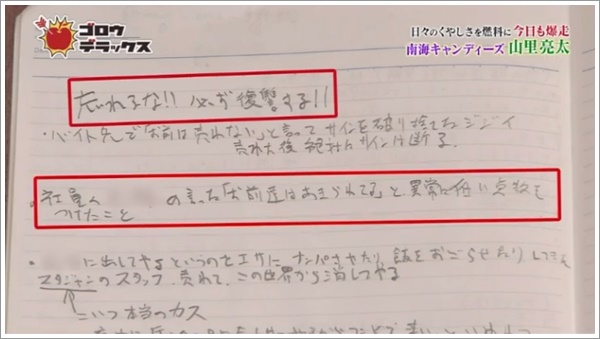 ゴロウ
デラックス
日々のくやしさを燃料に 今日も爆走
南海キャンディーズ 山里亮太
忘れるな!! 必ず復讐する!!
・バイト先で「お前は売れない」と言って サインを破り捨てたジジイ
売れた後 絶対にサインは断る。
・社員の の言った「お前達はあきられてる」と異常に低い点数を
つけたこと
に出してやるというのをエサに ナンパさせたり 飯をおごらせたり
スタジャンのスタッフ 売れて、この世界から消してやる
こいつ本当のカス